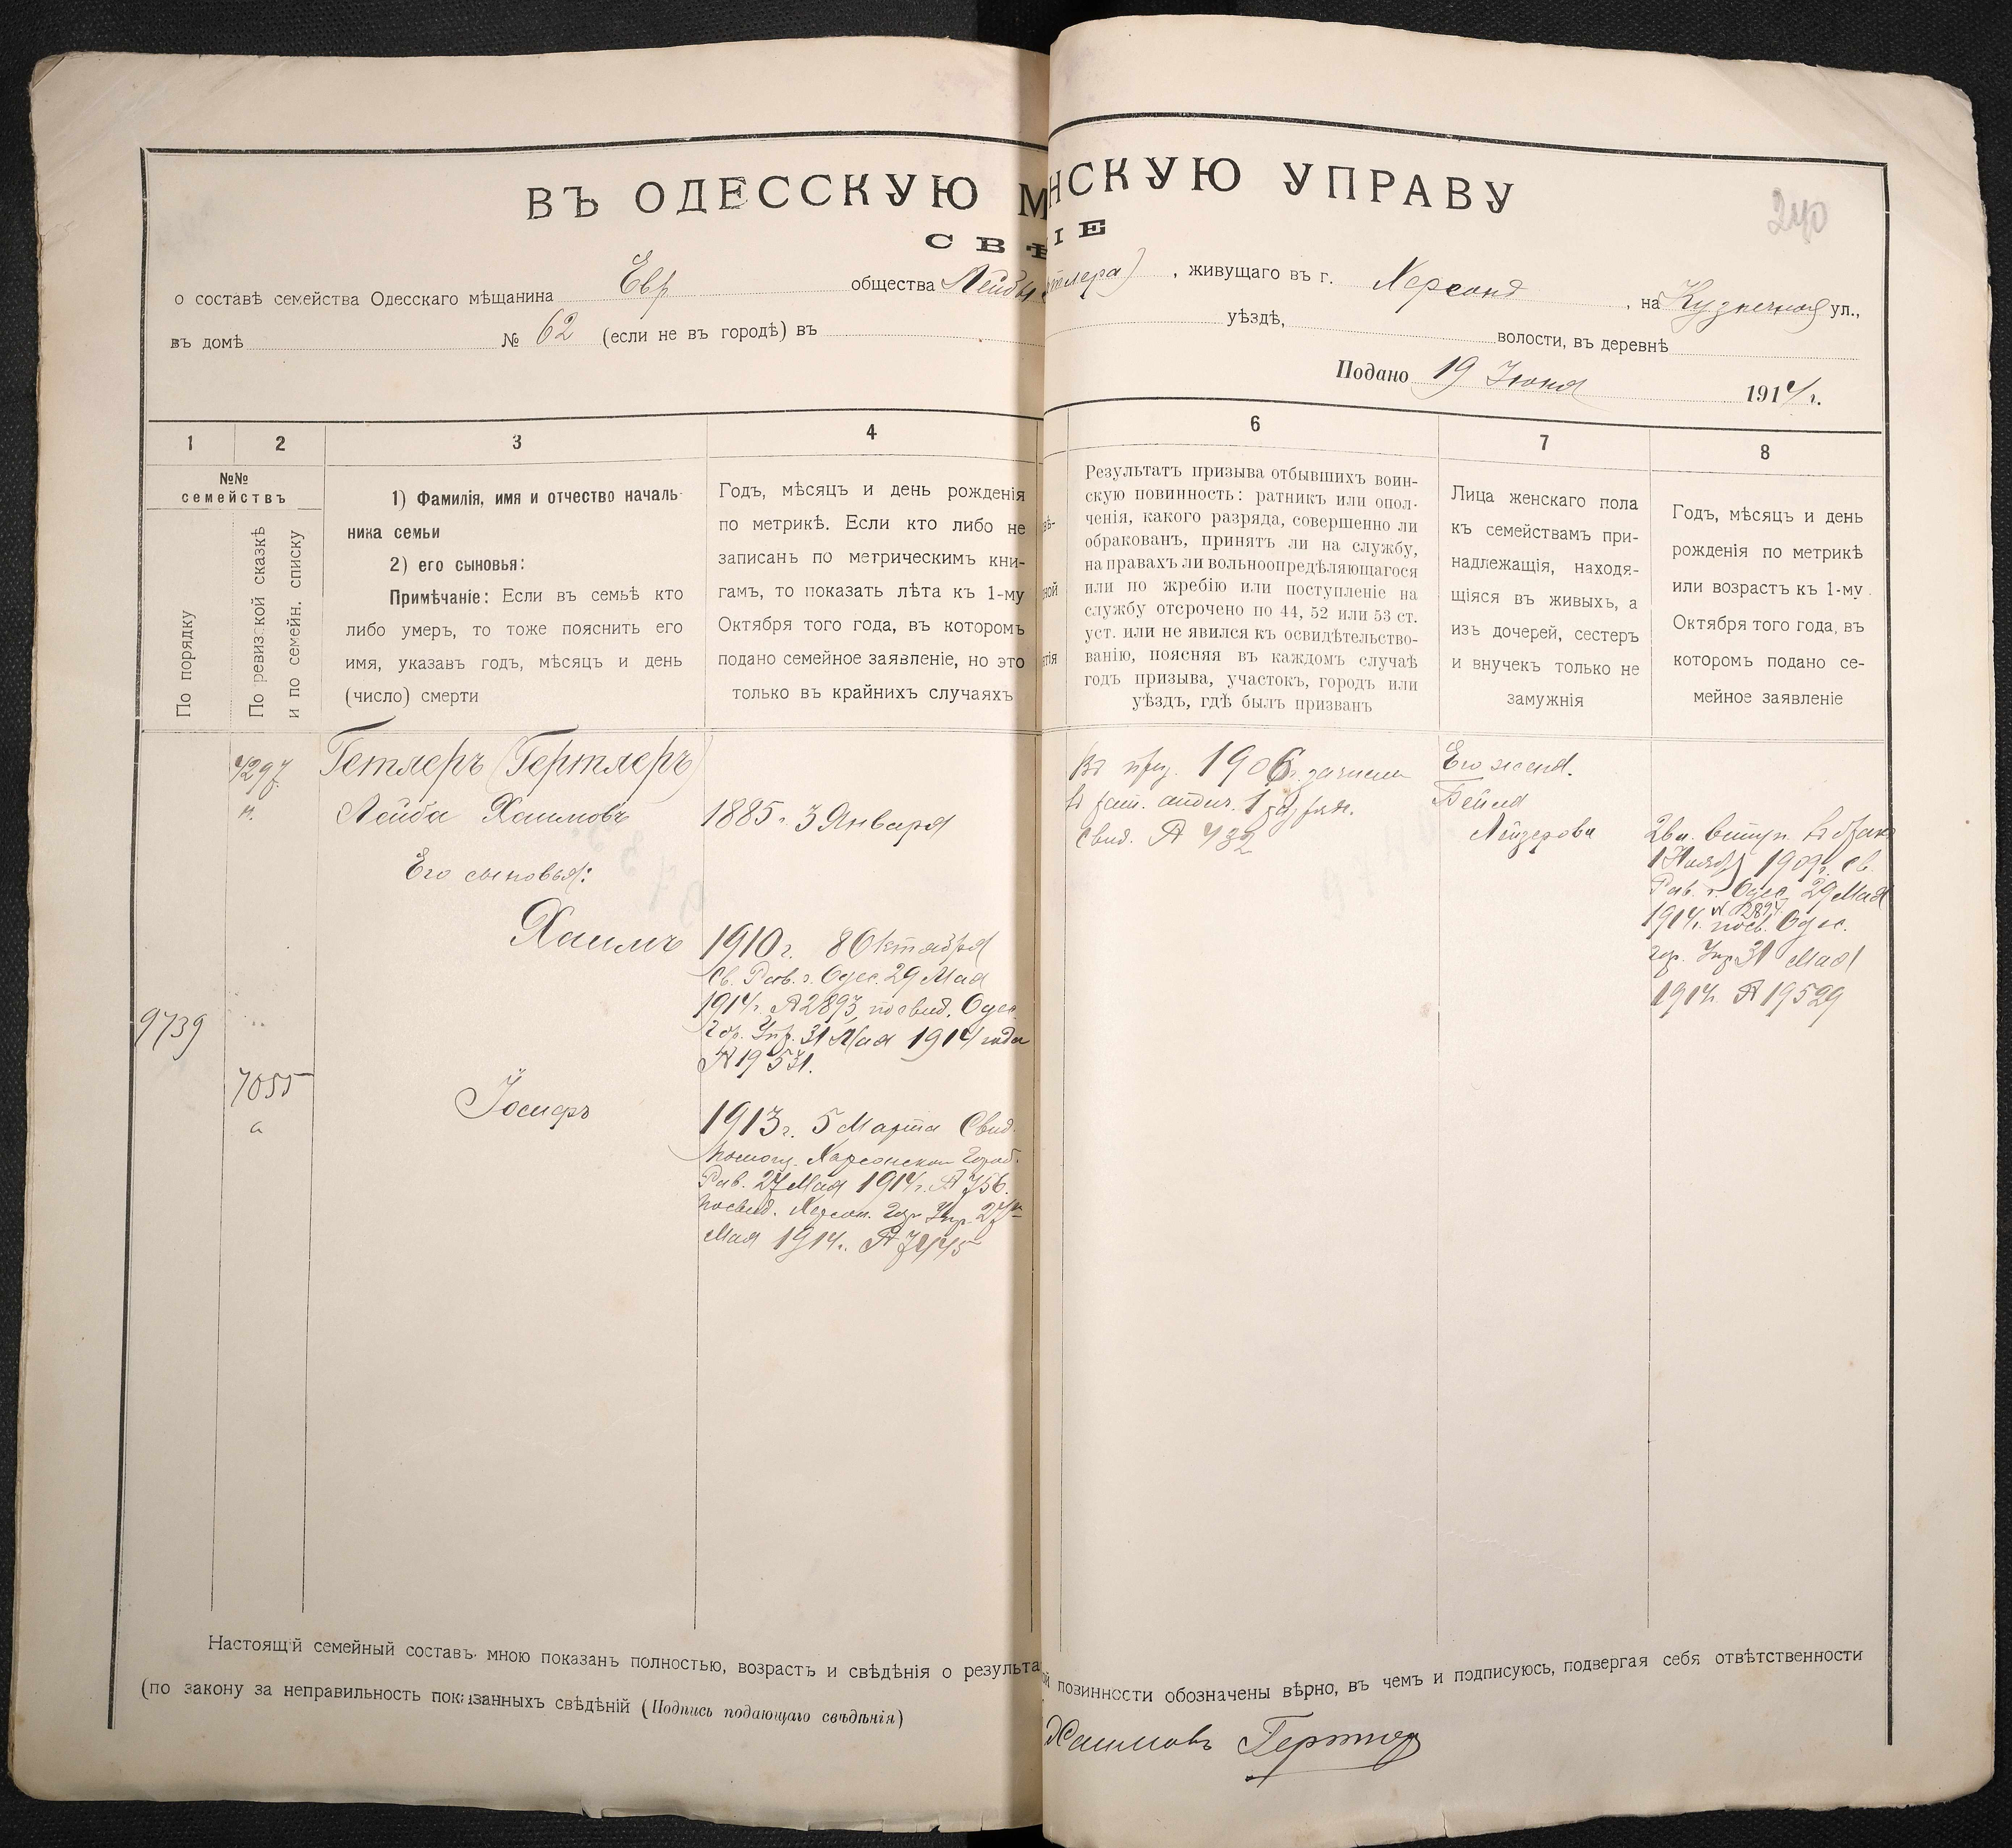 ВЪ ОДЕССКУЮ М НСКУЮ УПРАВУ
240
СВѢ ІЕ
о составѣ семейства Одесскаго мѣщанина Евр общества Лейбы тлера) , живущаго въ г. Херсонѣ , на Кузнечной ул.,
въ домѣ № 62 (если не въ городѣ) въ уѣздѣ, волости, въ деревнѣ
Подано 19 Іюня 1914 г.
1 2 3 4 6 7 8
№№
семействъ
По порядку
По ревизской сказкѣ
и по семейн. списку
1) Фамилія, имя и отчество началь-
ника семьи
2) его сыновья:
Примѣчаніе: Если въ семьѣ кто
либо умеръ, то тоже пояснить его
имя, указавъ годъ, мѣсяцъ и день
(число) смерти
Годъ, мѣсяцъ и день рожденія
по метрикѣ. Если кто либо не
записанъ по метрическимъ кни-
гамъ, то показать лѣта къ 1-му
Октября того года, въ которомъ
подано семейное заявленіе, но это
только въ крайнихъ случаяхъ
Результатъ призыва отбывшихъ воин-
скую повинность: ратникъ или опол-
ченія, какого разряда, совершенно ли
обракованъ, принятъ ли на службу,
на правахъ ли вольноопредѣляющагося
или по жребію или поступленіе на
службу отсрочено по 44, 52 или 53 ст.
уст. или не явился къ освидѣтельство-
ванію, поясняя въ каждомъ случаѣ
годъ призыва, участокъ, городъ или
уѣздъ, гдѣ былъ призванъ
Лица женскаго пола
къ семействамъ при-
надлежащія, находя-
щіяся въ живыхъ, а
изъ дочерей, сестеръ
и внучекъ только не
замужнія
Годъ, мѣсяцъ и день
рожденія по метрикѣ
или возрастъ къ 1-му
Октября того года, въ
которомъ подано се-
мейное заявленіе
9739
4297
н.
7055
а
Гетлеръ (Гертлеръ)
Лейба Хаимовъ
Его сыновья:
Хаимъ
Іосифъ
1885 г. 3 Января
1910 г. 8 Октября
Св. Рав. г. Одес. 29 Мая
1914 г. № 2893, посвид. Одес.
Гор. Упр. 31 Мая 1914 года
№ 19531.
1913 г. 5 Марта Свид.
помощ. Херсонск. Город.
Рав. 27 Мая 1914 г. № 756.
посвид. Херсон. Гор. Упр. 27
Мая 1914 г. № 7445
Въ приз. 1906 г. зачислен
въ рат. опол. 1 разряд.
Свид. № 432
Его жена.
Бейла
Лейзерова
вступ. въ бракъ
1 Ноября 1909 г. св.
Рав. г. Одес. 29 Мая
1914 г. посв. Одес.
гор. Упр. 31 Мая
1914 г. № 19529
Настоящій семейный составъ мною показанъ полностью, возрастъ и свѣдѣнія о результа й повинности обозначены вѣрно, въ чемъ и подписуюсь, подвергая себя отвѣтственности
(по закону за неправильность показанныхъ свѣдѣній (Подпись подающаго свѣдѣнія)
Хаимовъ Гертлер